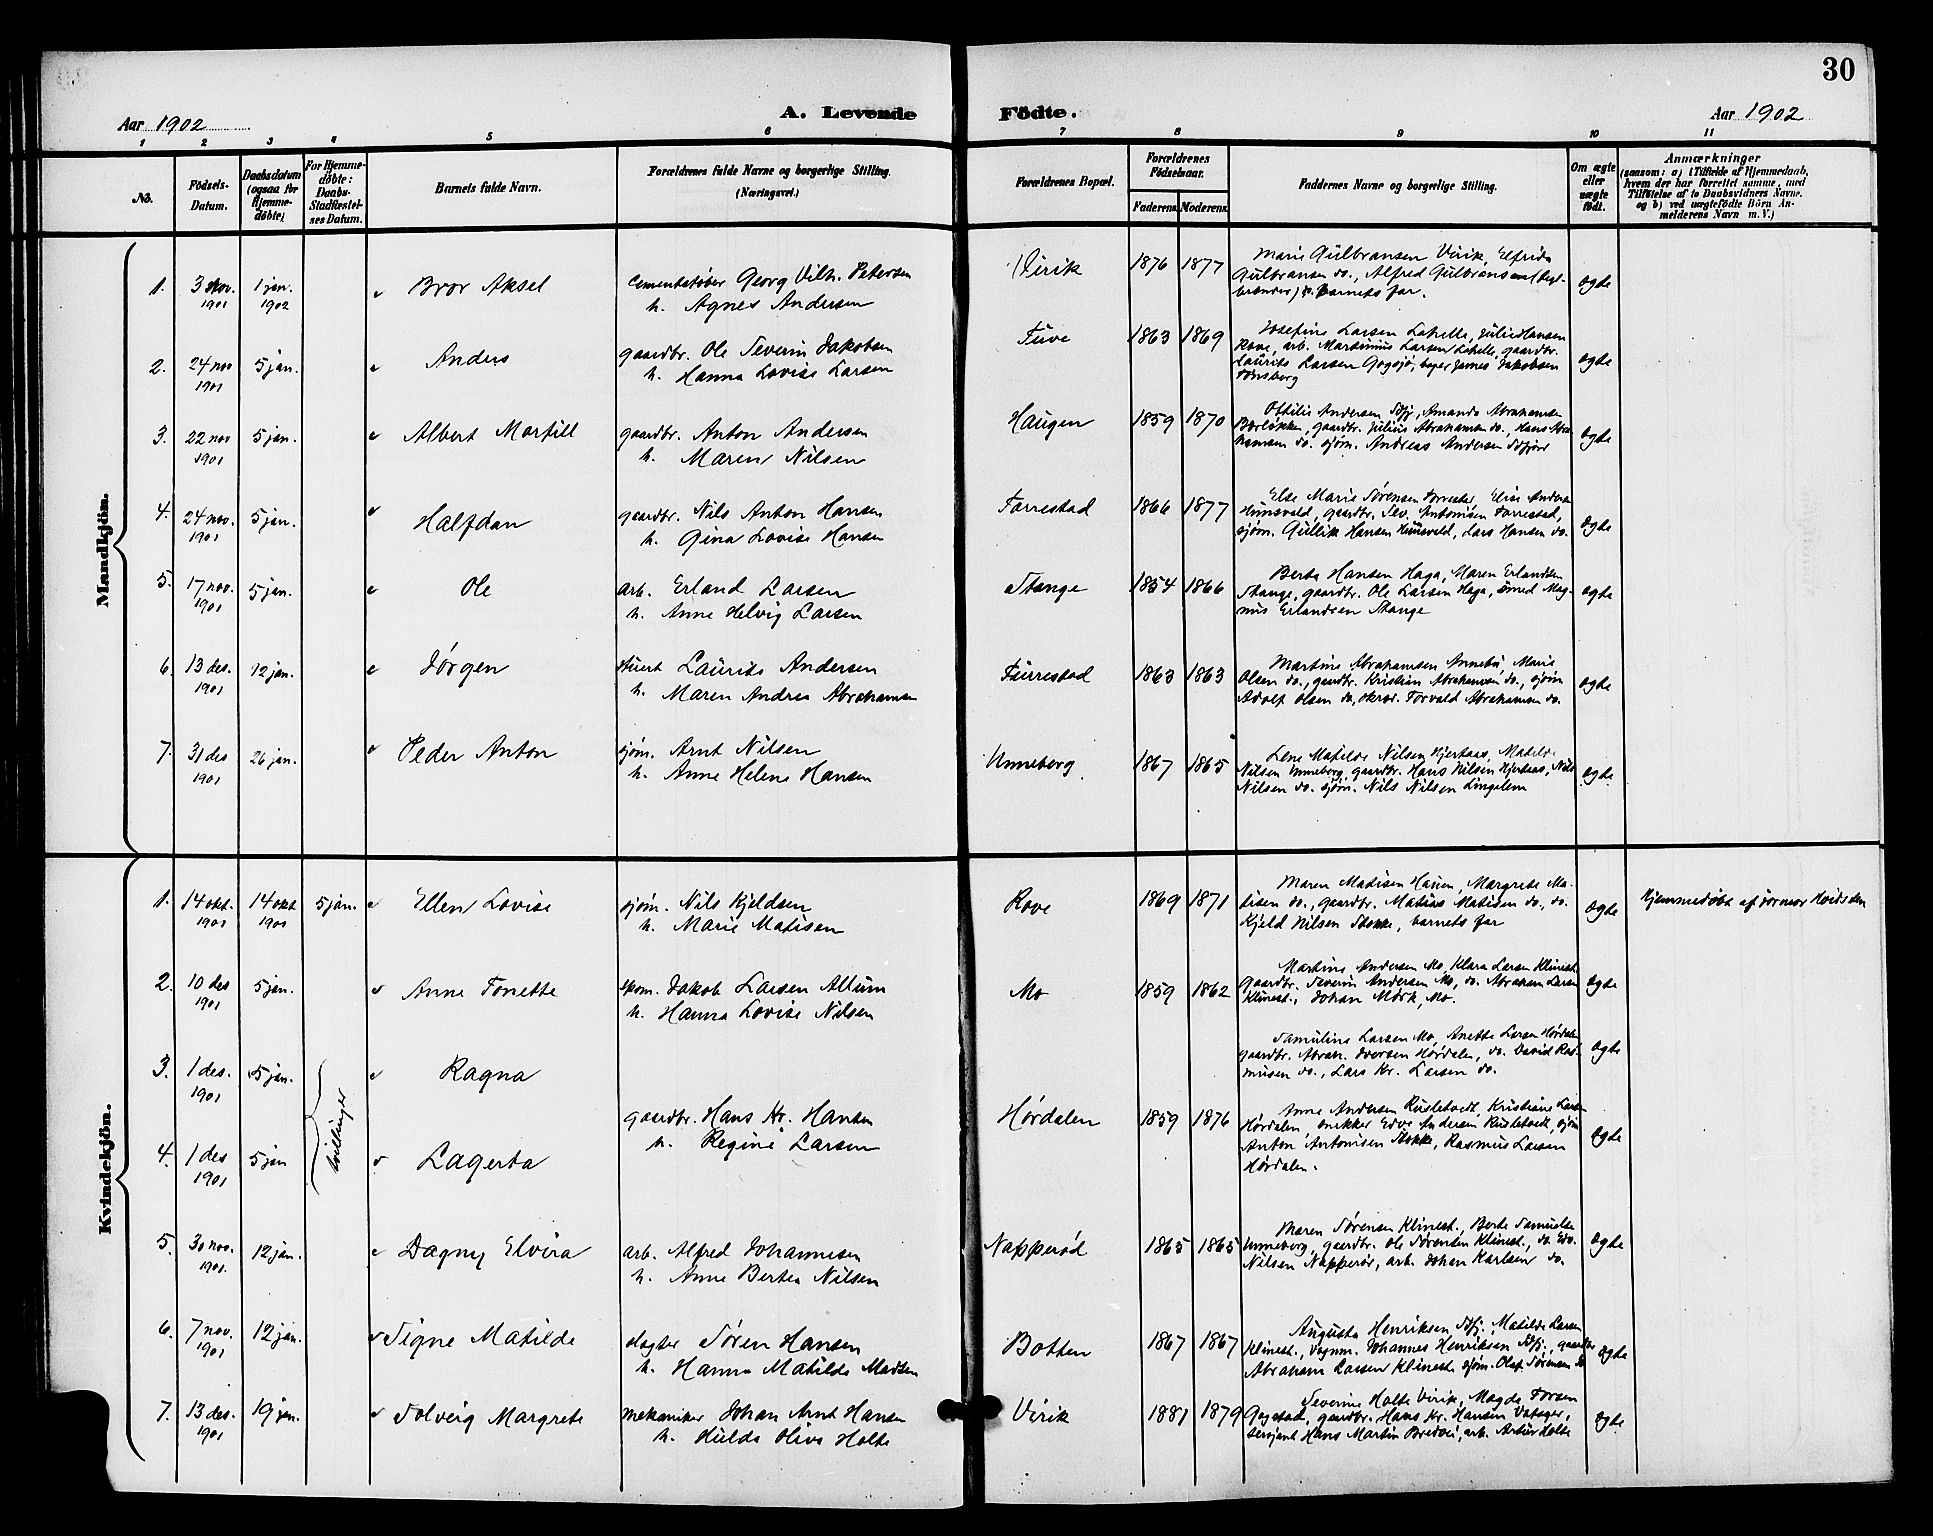 30
Aar 1902
A. Levende Födte.
Aar 1902
1 2 3 4 5 6 7 8 9 10 11
No.
Födsels-Datum.
Daabsdatum (ogsaa for Hjemmedøbte)
For Hjemmedøbte: Daabs-Stadfæstelses Datum.
Barnets fulde Navn.
Forældrenes fulde Navne og borgerlige Stilling. (Næringsvei.)
Forældrenes Bopæl.
Forældrenes Födselsaar.
Faderens. Moderens.
Faddernes Navne og borgerlige Stilling.
Om ægte eller uægte født.
Anmærkninger
(saasom: a) i Tilfælde af Hjemmedaab, hvem der har forrettet samme, med Tilföielse af to Daabsvidners Navne. og b) ved uægtefödte Börn Anmelderens Navn m. V.)
Mandkjön.
1. 3 nov. 1901 1 jan. 1902 Bror Aksel
cementstøber Georg Vilh. Petersen
h. Agnes Andersen
Virik 1876 1877
Marie Gulbransen Virik, Elfrida
Gulbransen do., Alfred Gulbransen
barnets far.
ægte
2. 24 nov 1901 5 jan. Anders
gaardbr. Ole Severin Jakobsen
h. Hanna Lovise Larsen
Tuve 1863 1869
Josefine Larsen Lahelle, Julie Hansen
Rove, arb. Martinius Larsen Lahelle, gaardbr.
Laurits Larsen Gogsjø, James Jakobsen
Tønsberg
ægte
3. 22 nov 1901 5 jan. Albert Martill
gaardbr. Anton Andersen
h. Maren Nilsen
Haugen 1859 1870
Ottilie Andersen Sdfj., Amanda Abrahamsen
gaardbr. Julius Abrahamsen do., Hans Abra-
hamsen do. sjøm. Andreas Andersen
ægte
4. 24 nov. 1901 5 jan. Halfdan
gaardbr. Nils Anton Hansen
h. Gina Lovise Hansen
Forrestad 1866 1877
Else Marie Sørensen Forrestad, Elise Anders.
Hunsvald, gaardbr. Sev. Antonisen Forrestad,
sjøm. Gullik Hansen Hunsvald, Lars Hansen do.
ægte
5. 17 nov. 1901 5 jan. Ole
arb. Erland Larsen
h. Anne Helvig Larsen
Stange 1854 1866
Berta Hansen Haga, Maren Erlandsen
Stange, gaardbr. Ole Larsen Haga, smed Mag-
nus Erlandsen Stange
ægte
6. 13 des. 1901 12 jan. Jørgen
stuert Laurits Andersen
h. Maren Andrea Abrahamsen
Furrestad 1863 1863
Martine Abrahamsen Annebu, Marie
Olsen do., gaardbr. Kristian Abrahamsen do., sjøm
Adolf Olsen do, skræd. Torvald Abrahamsen do.
ægte
7. 31 des 1901 26 jan. Peder Anton
sjøm. Arnt Nilsen
h. Anne Helene Hansen
Unneberg 1867 1865
Lene Matilde Nilsen Hjertaas, Matilde
Nilsen Unneberg, gaardbr. Hans Nilsen Hjertaas, Nils
Nilsen do. sjøm. Nils Nilsen Lingelem
ægte
Kvindekjön.
1. 14 okt. 1901 14 okt 1901 5 jan. Ellen Lovise
sjøm. Nils Kjeldsen
h. Marie Matisen
Rove 1869 1871
Maren Matisen Hauen, Margrete Ma-
tisen do., gaardbr. Matias Matisen do., do.
Kjeld Nilsen Stokke, barnets far
ægte
Hjemmedøbt af jormor Hvidsten
2. 10 des 1901 5 jan. Anne Tonette
skom. Jakob Larsen Allum
h. Hanna Lovise Nilsen
Mo 1859 1862
Martine Andersen Mo, Klara Larsen Klinest.
gaardbr. Severin Andersen Mo, do. Abraham Larsen
Klinest., Johan Mørk, Mo.
ægte
3. 1 des. 1901 5 jan. Ragna
Samuline Larsen Mo, Anette Larsen Hørdalen
gaardbr. Abrah. Iversen Hørdalen, do. David Ras-
musen do., Lars Kr. Larsen do.
ægte
tvillinger
gaardbr. Hans Kr. Hansen
h. Regine Larsen
Hørdalen 1859 1876
4. 1 des 1901 5 jan Lagerta
Anne Andersen Ruslehvedt, Kristiane Larsen
Hørdalen, snekker Edv. Andersen Ruslehvedt, sjøm
Anton Antonisen Stokke, Rasmus Larsen
Hørdalen.
ægte
5. 30 nov. 1901. 12 jan. Dagny Elvira
arb. Alfred Johannesen
h. Anne Bertea Nilsen
Napperød 1865 1865
Maren Sørensen Klinest., Berte Samuelsen
Unneberg, gaardbr. Ole Sørensen Klinest., do. Edv.
Nilsen Napperør, arb. Johan Karlsen do.
ægte
6. 7 nov. 1901 12 jan. Signe Matilde
slagter Søren Hansen
h. Hanna Matilde Madsen
Botten 1867 1867
Augusta Henriksen Sdfj., Matilde Larsen
Klinest., Vognm. Johannes Henriksen Sdfj., gaardbr
Abraham Larsen Klinest. sjøm. Olaf Sørensen do
ægte
7. 13 des. 1901 19 jan. Solveig Margrete
mekaniker Johan Arnt Hansen
h. Hulda Oliva Holte
Virik 1881 1879
Severine Holte Virik, Magda Toresen
Gogstad, gaardbr. Hans Kr. Hansen Vatager,
sersjant Hans Martin Bredvei, arb. Artur Holte
ægte